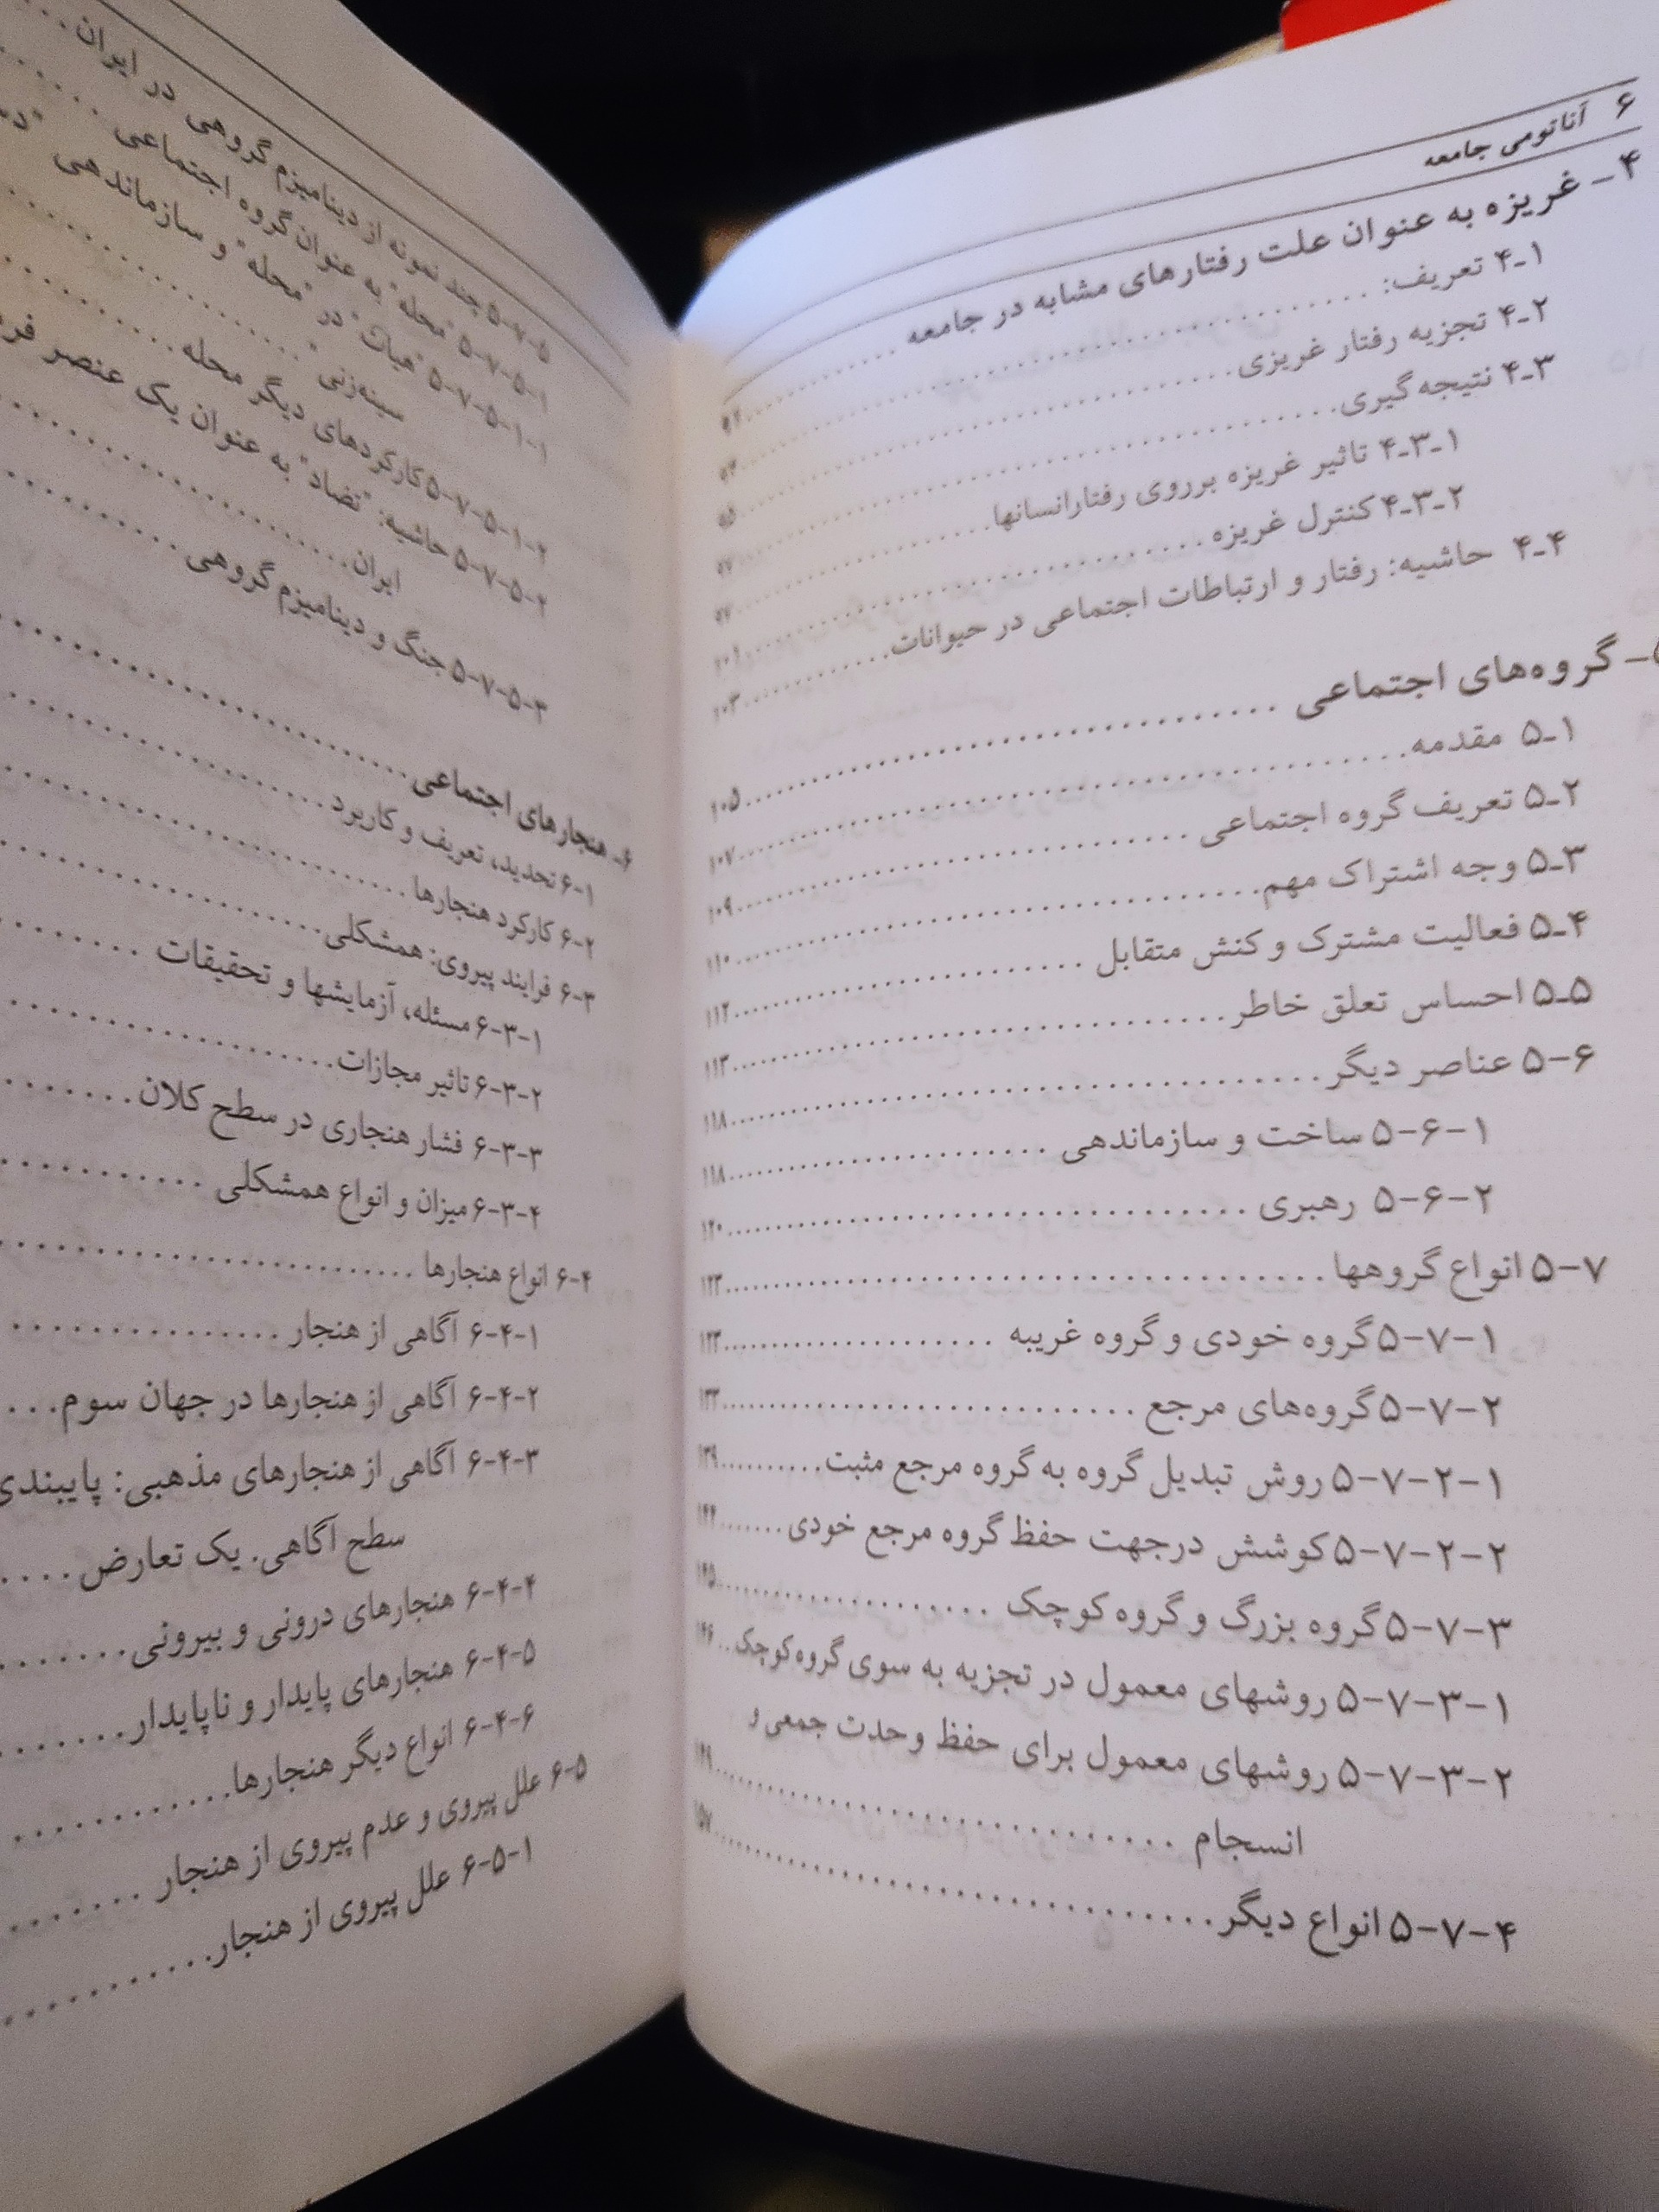 ۶ آناتومی جامعه
۴- غریزه به عنوان علت رفتارهای مشابه در جامعه
۴-۱ تعریف:
۴-۲ تجزیه رفتار غریزی
۴-۳ نتیجه‌گیری
۴-۳-۱ تاثیر غریزه برروی رفتارانسانها
۴-۳-۲ کنترل غریزه
۴-۴ حاشیه: رفتار و ارتباطات اجتماعی در حیوانات ۱۰۳
- گروه‌های اجتماعی ۱۰۵
۵-۱ مقدمه ۱۰۷
۵-۲ تعریف گروه اجتماعی ۱۰۹
۵-۳ وجه اشتراک مهم ۱۱۰
۵-۴ فعالیت مشترک و کنش متقابل ۱۱۲
۵-۵ احساس تعلق خاطر ۱۱۳
۵-۶ عناصر دیگر ۱۱۸
۵-۶-۱ ساخت و سازماندهی ۱۱۸
۵-۶-۲ رهبری ۱۲۰
۵-۷ انواع گروهها ۱۲۳
۵-۷-۱ گروه خودی و گروه غریبه ۱۲۳
۵-۷-۲ گروه‌های مرجع
۵-۷-۲-۱ روش تبدیل گروه به گروه مرجع مثبت
۵-۷-۲-۲ کوشش درجهت حفظ گروه مرجع خودی
۵-۷-۳ گروه بزرگ و گروه کوچک
۵-۷-۳-۱ روشهای معمول در تجزیه به سوی گروه کوچک
۵-۷-۳-۲ روشهای معمول برای حفظ وحدت جمعی و
انسجام
۵-۷-۴ انواع دیگر
۵-۷-۵ چند نمونه از دینامیزم گروهی در ایران
۵-۷-۵-۱ "محله" به عنوان گروه اجتماعی
۵-۷-۵-۱-۱ "هیات" در "محله" و سازماندهی
سینه‌زنی"
۵-۷-۵-۱-۲ کارکردهای دیگر محله
۵-۷-۵-۲ حاشیه: "تضاد" به عنوان یک عنصر
ایران
۵-۷-۵-۳ جنگ و دینامیزم گروهی
۶- هنجارهای اجتماعی
۶-۱ تحدید، تعریف و کاربرد
۶-۲ کارکرد هنجارها
۶-۳ فرایند پیروی: همشکلی
۶-۳-۱ مسئله، آزمایشها و تحقیقات
۶-۳-۲ تاثیر مجازات
۶-۳-۳ فشار هنجاری در سطح کلان
۶-۳-۴ میزان و انواع همشکلی
۶-۴ انواع هنجارها
۶-۴-۱ آگاهی از هنجار
۶-۴-۲ آگاهی از هنجارها در جهان سوم
۶-۴-۳ آگاهی از هنجارهای مذهبی: پایبندی
سطح آگاهی. یک تعارض
۶-۴-۴ هنجارهای درونی و بیرونی
۶-۴-۵ هنجارهای پایدار و ناپایدار
۶-۴-۶ انواع دیگر هنجارها
۶-۵ علل پیروی و عدم پیروی از هنجار
۶-۵-۱ علل پیروی از هنجار